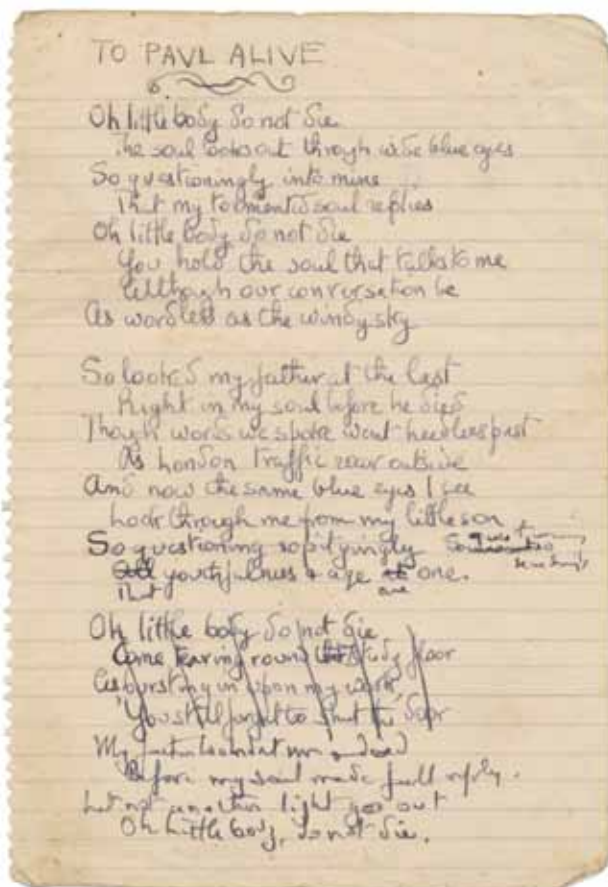 TO PAUL ALIVE
Oh little body do not die
The soul looks out through wide blue eyes
So questioningly into mine
That my tormented soul replies
Oh little body do not die
You hold the soul that talks to me
Although our conversation be
As wordless as the windy sky
So looked my father at the last
Right in my soul before he died
Though words we spoke went heedless past
As London traffic roar outside
And now the same blue eyes I see
Look through me from my little son
So questioning so pityingly
All youthfulness & age one.
That are
Oh little body do not die
Come tearing round study floor
bursting in upon my work
You still forget to shut the door
My father looked at me
Before my soul made full reply.
Let not another light go out
Oh Little body, do not die.